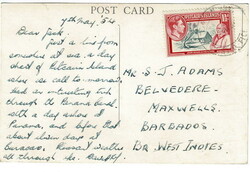 POST CARD
7th May, '54
Dear Jack,
Just a line from
somewhere at sea a day
short of Pitcairn Island
where we call to-morrow.
had an interesting trip
through the Panama Canal
with a day ashore at
Panama, and before that
about eleven days at
Curacao.
all through.
PITCAIRN ISLANDS
MR. S. J. ADAMS
BELVEDERE
MAXWELLS
BARBADOS
BR. WEST INDIES